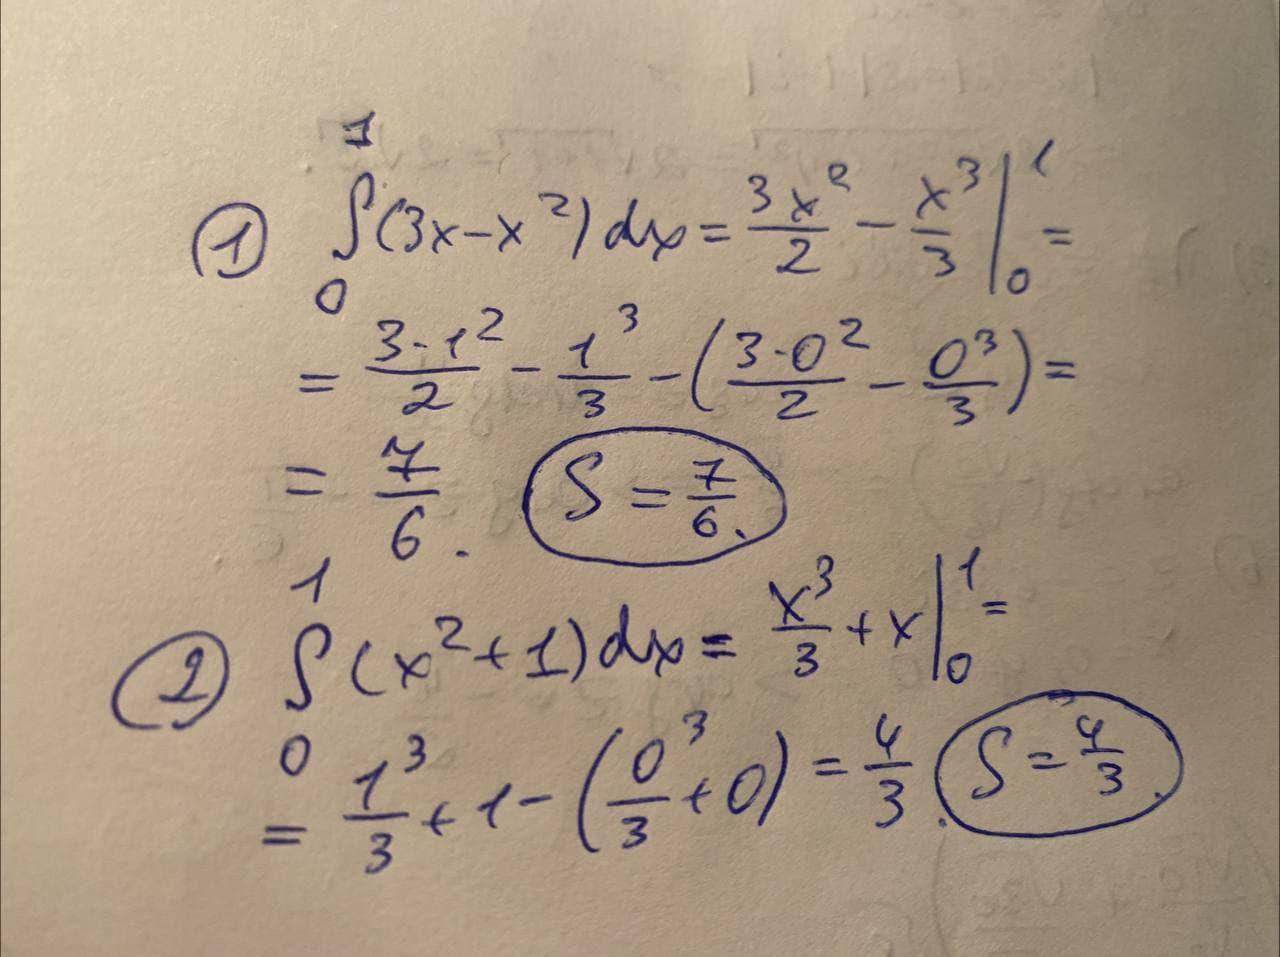 ① ∫₀¹ (3x-x²) dx = 3x²/2 - x³/3 |₀¹ =
= 3·1²/2 - 1³/3 - (3·0²/2 - 0³/3) =
= 7/6. S = 7/6.
② ∫₀¹ (x²+1) dx = x³/3 + x |₀¹ =
= 1³/3 + 1 - (0³/3 + 0) = 4/3. S = 4/3.